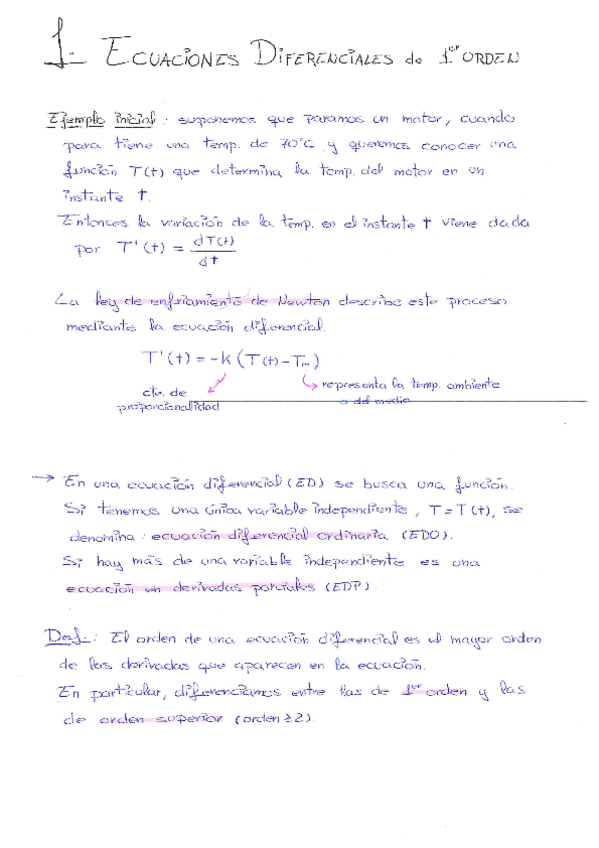 1.- ECUACIONES DIFERENCIALES de 1er ORDEN
Ejemplo inicial: suponemos que paramos un motor, cuando
para tiene una temp. de 70°C y queremos conocer una
función T(t) que determina la temp. del motor en un
instante t.
Entonces la variación de la temp. en el instante t viene dada
por T'(t) = dT(t)/dt
La ley de enfriamiento de Newton describe este proceso
mediante la ecuación diferencial.
T'(t) = -k (T(t) - Tm)
cte. de
proporcionalidad
representa la temp. ambiente
o del medio.
→ En una ecuación diferencial (ED) se busca una función.
Si tenemos una única variable independiente, T = T(t), se
denomina: ecuación diferencial ordinaria (EDO).
Si hay más de una variable independiente es una
ecuación en derivadas parciales (EDP).
Def.: El orden de una ecuación diferencial es el mayor orden
de las derivadas que aparecen en la ecuación.
En particular, diferenciamos entre las de 1er orden y las
de orden superior (orden ≥ 2).